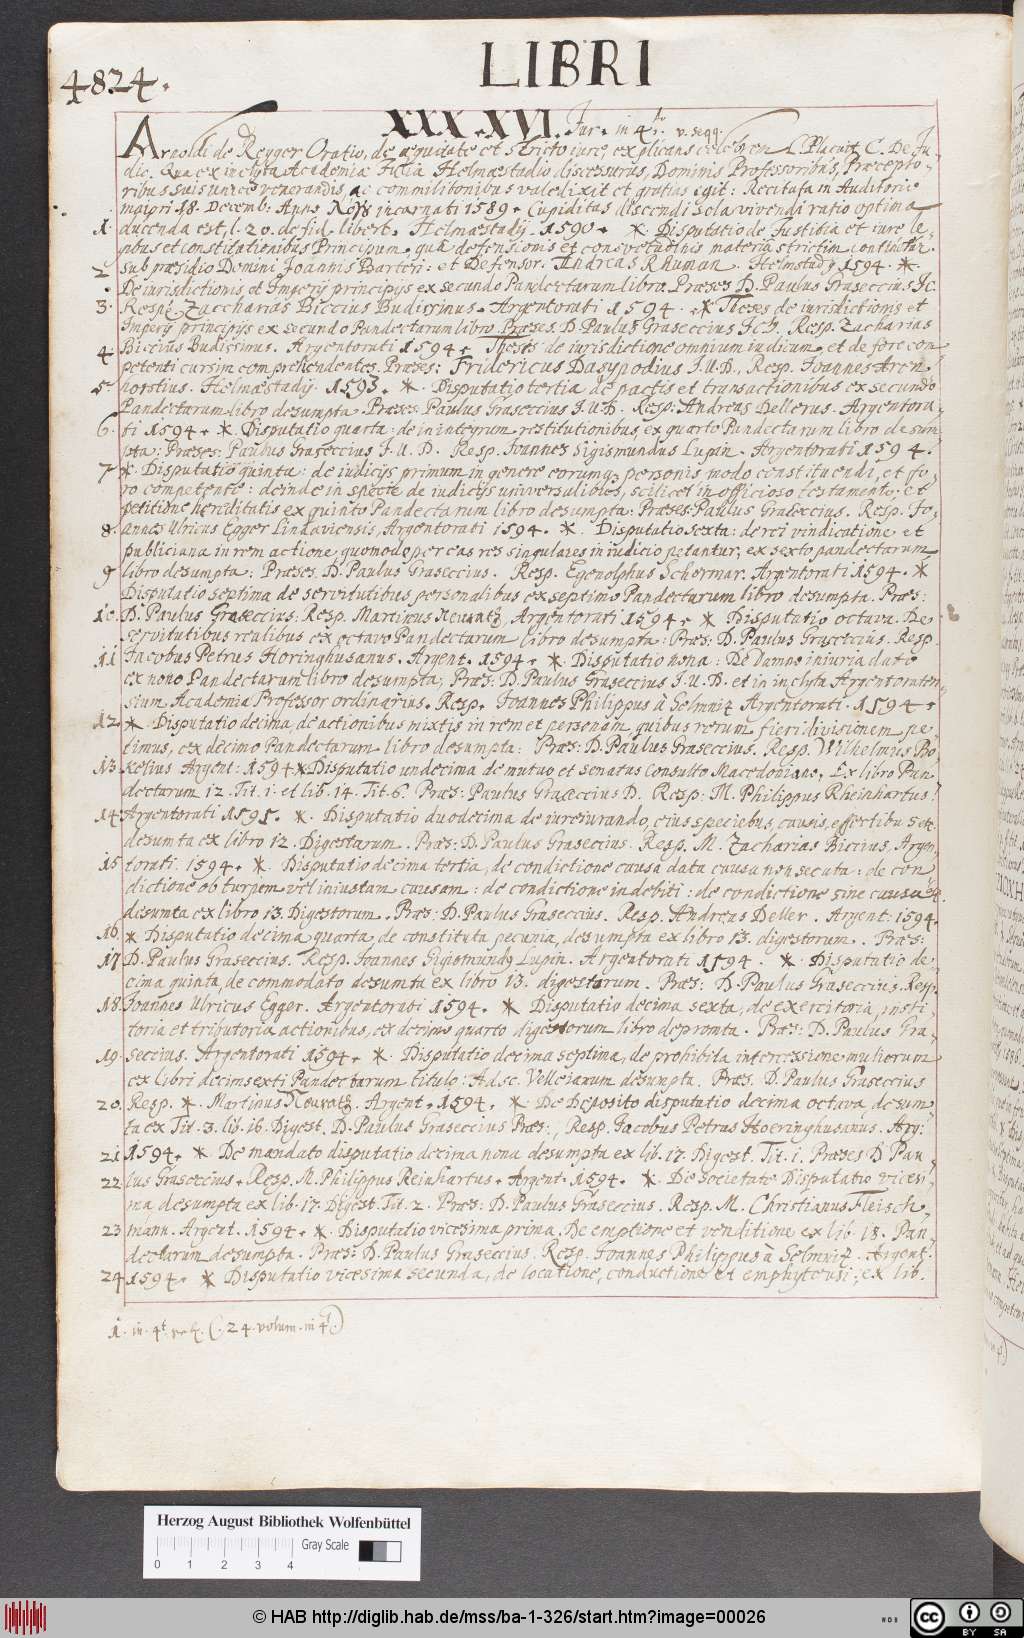 4824.
LIBRI
XXX.XVI. Jur. in 4to. v. seqq.
Arnoldi de Reyger Oratio, de aequitate et stricto iure, explicans celebrem L. Placuit C. De Ju-
dic. Qua ex inclyta Academia Julia Helmaestadio discessurus, Dominis Professoribus, Praecepto-
ribus suis unice venerandis, ac commilitonibus valedixit et gratias egit: Recitata in Auditorio
maiori 18. Decemb: Anno incarnati 1589. Cupiditas discendi sola vivendi ratio optima
1. ducenda est, l. 20. de fid. libert. Helmaestadij. 1590. * Disputatio de Justitia et iure le-
gibus et constitutionibus Principum, quae defensionis et consvetudinis materia strictim continetur.
2 sub praesidio Domini Joannis Barteri: et Defensor: Andreas Rhuman. Helmstadij 1594. *
De iurisdictionis et Imperij principijs ex secundo Pandectarum libro. Praeses D. Paulus Graseccius Jc.
3. Resp: Zaccharias Biccius Budissinus. Argentorati 1594. * Theses de iurisdictionis et
Imperij principijs ex secundo Pandectarum libro. Praeses. D. Paulus Graseccius JCs. Resp. Zacharias
4 Biccius Budissinus. Argentorati 1594. Thesis de iurisdictione omnium iudicum, et de foro com
petenti cursim comprehendentes. Praeses: Fridericus Dasypodius J.U.D., Resp. Joannes Aren
5. hostius. Helmaestadij. 1593. * Disputatio tertia de pactis et transactionibus ex secundo
Pandectarum libro desumpta. Praeses. Paulus Graseccius J.U.D. Resp. Andreas Dellerus. Argentora-
6. ti 1594. * Disputatio quarta: de in integrum restitutionibus, ex quarto Pandectarum libro de sum
pta: Praeses: Paulus Graseccius J.U.D. Resp. Joannes Sigismundus Lupan. Argentorati 1594.
7 * Disputatio quinta: de iudicijs primum in genere eorumq personis modo constituendi, et fo-
ro competente: deinde in specie de iudicijs universalibus, scilicet inofficioso testamento, et
petitione hereditatis ex quinto Pandectarum libro desumpta: Praeses: Paulus Graseccius. Resp. Jo-
8. annes Ulricus Egger Lindaviensis, Argentorati 1594. * Disputatio sexta: de rei vindicatione et
publiciana in rem actione, quomodo per eas res singulares in iudicio petantur, ex sexto pandectarum
9 libro desumpta: Praeses. D. Paulus Graseccius. Resp. Egenolphus Schermar. Argentorati 1594. *
Disputatio septima de servitutibus personalibus ex septimo Pandectarum libro desumpta. Praes:
10. D. Paulus Graseccius. Resp. Martinus Neuratz, Argentorati 1594. * Disputatio octava. De
servitutibus realibus ex octavo Pandectarum libro desumpta: Praes: D. Paulus Graseccius. Resp.
11 Jacobus Petrus Horinghusanus. Argent. 1594. * Disputatio nona: De Damno iniuria dato
ex nono Pandectarum libro desumpta, Praes: D. Paulus Graseccius J.U.D. et in inclyta Argentoraten-
sium Academia Professor ordinarius. Resp. Joannes Philippus à Selmnitz Argentorati. 1594.
12. * Disputatio decima, de actionibus mixtis in rem et personam, quibus rerum fieri divisionem pe-
timus, ex decimo Pandectarum libro desumpta: Praes: D. Paulus Graseccius. Resp. Wilhelmus Bo-
13. kelius Argent: 1594 * Disputatio undecima de mutuo et Senatus Consulto Macedoniano, Ex libro Pan-
dectarum 12. Tit. 1. et lib. 14. Tit. 6. Praes: Paulus Graseccius D. Resp: M. Philippus Rheinhartus.
14 Argentorati 1595. * Disputatio duodecima de iureiurando, eius speciebus, causis, effectibus etc
desumta ex libro 12. Digestarum. Praes: D. Paulus Graseccius. Resp. M. Zacharias Biccius. Argen-
15 torati. 1594. * Disputatio decima tertia, de condictione causa data causa non secuta: de con
dictione ob turpem vel iniustam causam: de condictione indebiti: de condictione sine causa etc.
desumta ex libro 13. Digestorum. Praes: D. Paulus Graseccius. Resp. Andreas Deller. Argent: 1594.
16. * Disputatio decima quarta, de constituta pecunia, desumpta ex libro 13. digestorum. Praes:
17. D. Paulus Graseccius. Resp. Joannes Gigismundg Lupin. Argentorati 1594. * Disputatio de-
cima quinta, de commodato desumta ex libro 13. digestorum. Praes: D. Paulus Graseccius. Resp.
18. Joannes Ulricus Egger. Argentorati 1594. * Disputatio decima sexta, de exercitoria, insti-
toria et tributoria actionibus, ex decimo quarto digestorum libro depromta. Praes: D. Paulus Gra-
19. seccius. Argentorati 1594. * Disputatio decima septima, de prohibita intercessione mulierum
ex libri decimsexti Pandectarum titulo: Ad sc. Velleianum desumpta. Praes. D. Paulus Graseccius
20. Resp. * Martinus Neuratz. Argent. 1594. * De Deposito disputatio decima octava, desum-
ta ex Tit. 3. lib. 16. Digest. D. Paulus Graseccius Praes:, Resp. Jacobus Petrus Hoeringhusanus. Arg:
21 1594. * De mandato disputatio decima nona desumpta ex lib. 17. Digest. Tit. 1. Praeses D Pau-
22 lus Graseccius. Resp. M. Philippus Reinhartus. Argent. 1594. * De Societate Disputatio vicesi-
ma desumpta ex lib. 17. Digest. Tit. 2. Praes: D. Paulus Graseccius. Resp. M. Christianus Fleisch-
23 mann. Argent. 1594. * Disputatio vicesima prima, De emptione et venditione ex lib. 18. Pan-
dectarum desumpta. Praes: D. Paulus Graseccius. Resp. Joannes Philippus à Selmnitz. Argent.
24 1594. * Disputatio vicesima secunda, de locatione, conductione et emphyteusi, ex lib.
1. in. 4t. (. 24. volum. in 4t.)
Herzog August Bibliothek Wolfenbüttel
0 1 2 3 4
Gray Scale
© HAB http://diglib.hab.de/mss/ba-1-326/start.htm?image=00026
WDB
cc BY SA